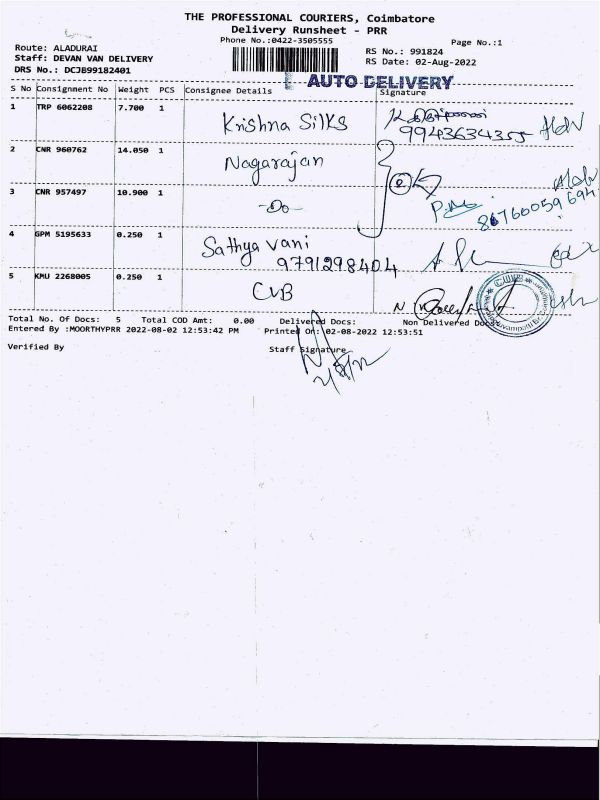 THE PROFESSIONAL COURIERS, Coimbatore
Delivery Runsheet - PRR
Phone No.:0422-3505555
Page No.:1
Route: ALADURAI
Staff: DEVAN VAN DELIVERY
DRS No.: DCJB99182401
RS No.: 991824
RS Date: 02-Aug-2022
AUTO DELIVERY
S No Consignment No Weight PCS Consignee Details Signature
1 TRP 6062208 7.700 1 Krishna Silks
9943634355
2 CNR 960762 14.050 1 Nagarajan
3 CNR 957497 10.900 1 -Do-
8676005969
4 GPM 5195633 0.250 1 Sathya vani
9791298404
5 KMU 2268005 0.250 1 CVB
Total No. Of Docs: 5 Total COD Amt: 0.00 Delivered Docs: Non Delivered Docs
Entered By :MOORTHYPRR 2022-08-02 12:53:42 PM Printed On: 02-08-2022 12:53:51
Verified By Staff Signature
2/8/22